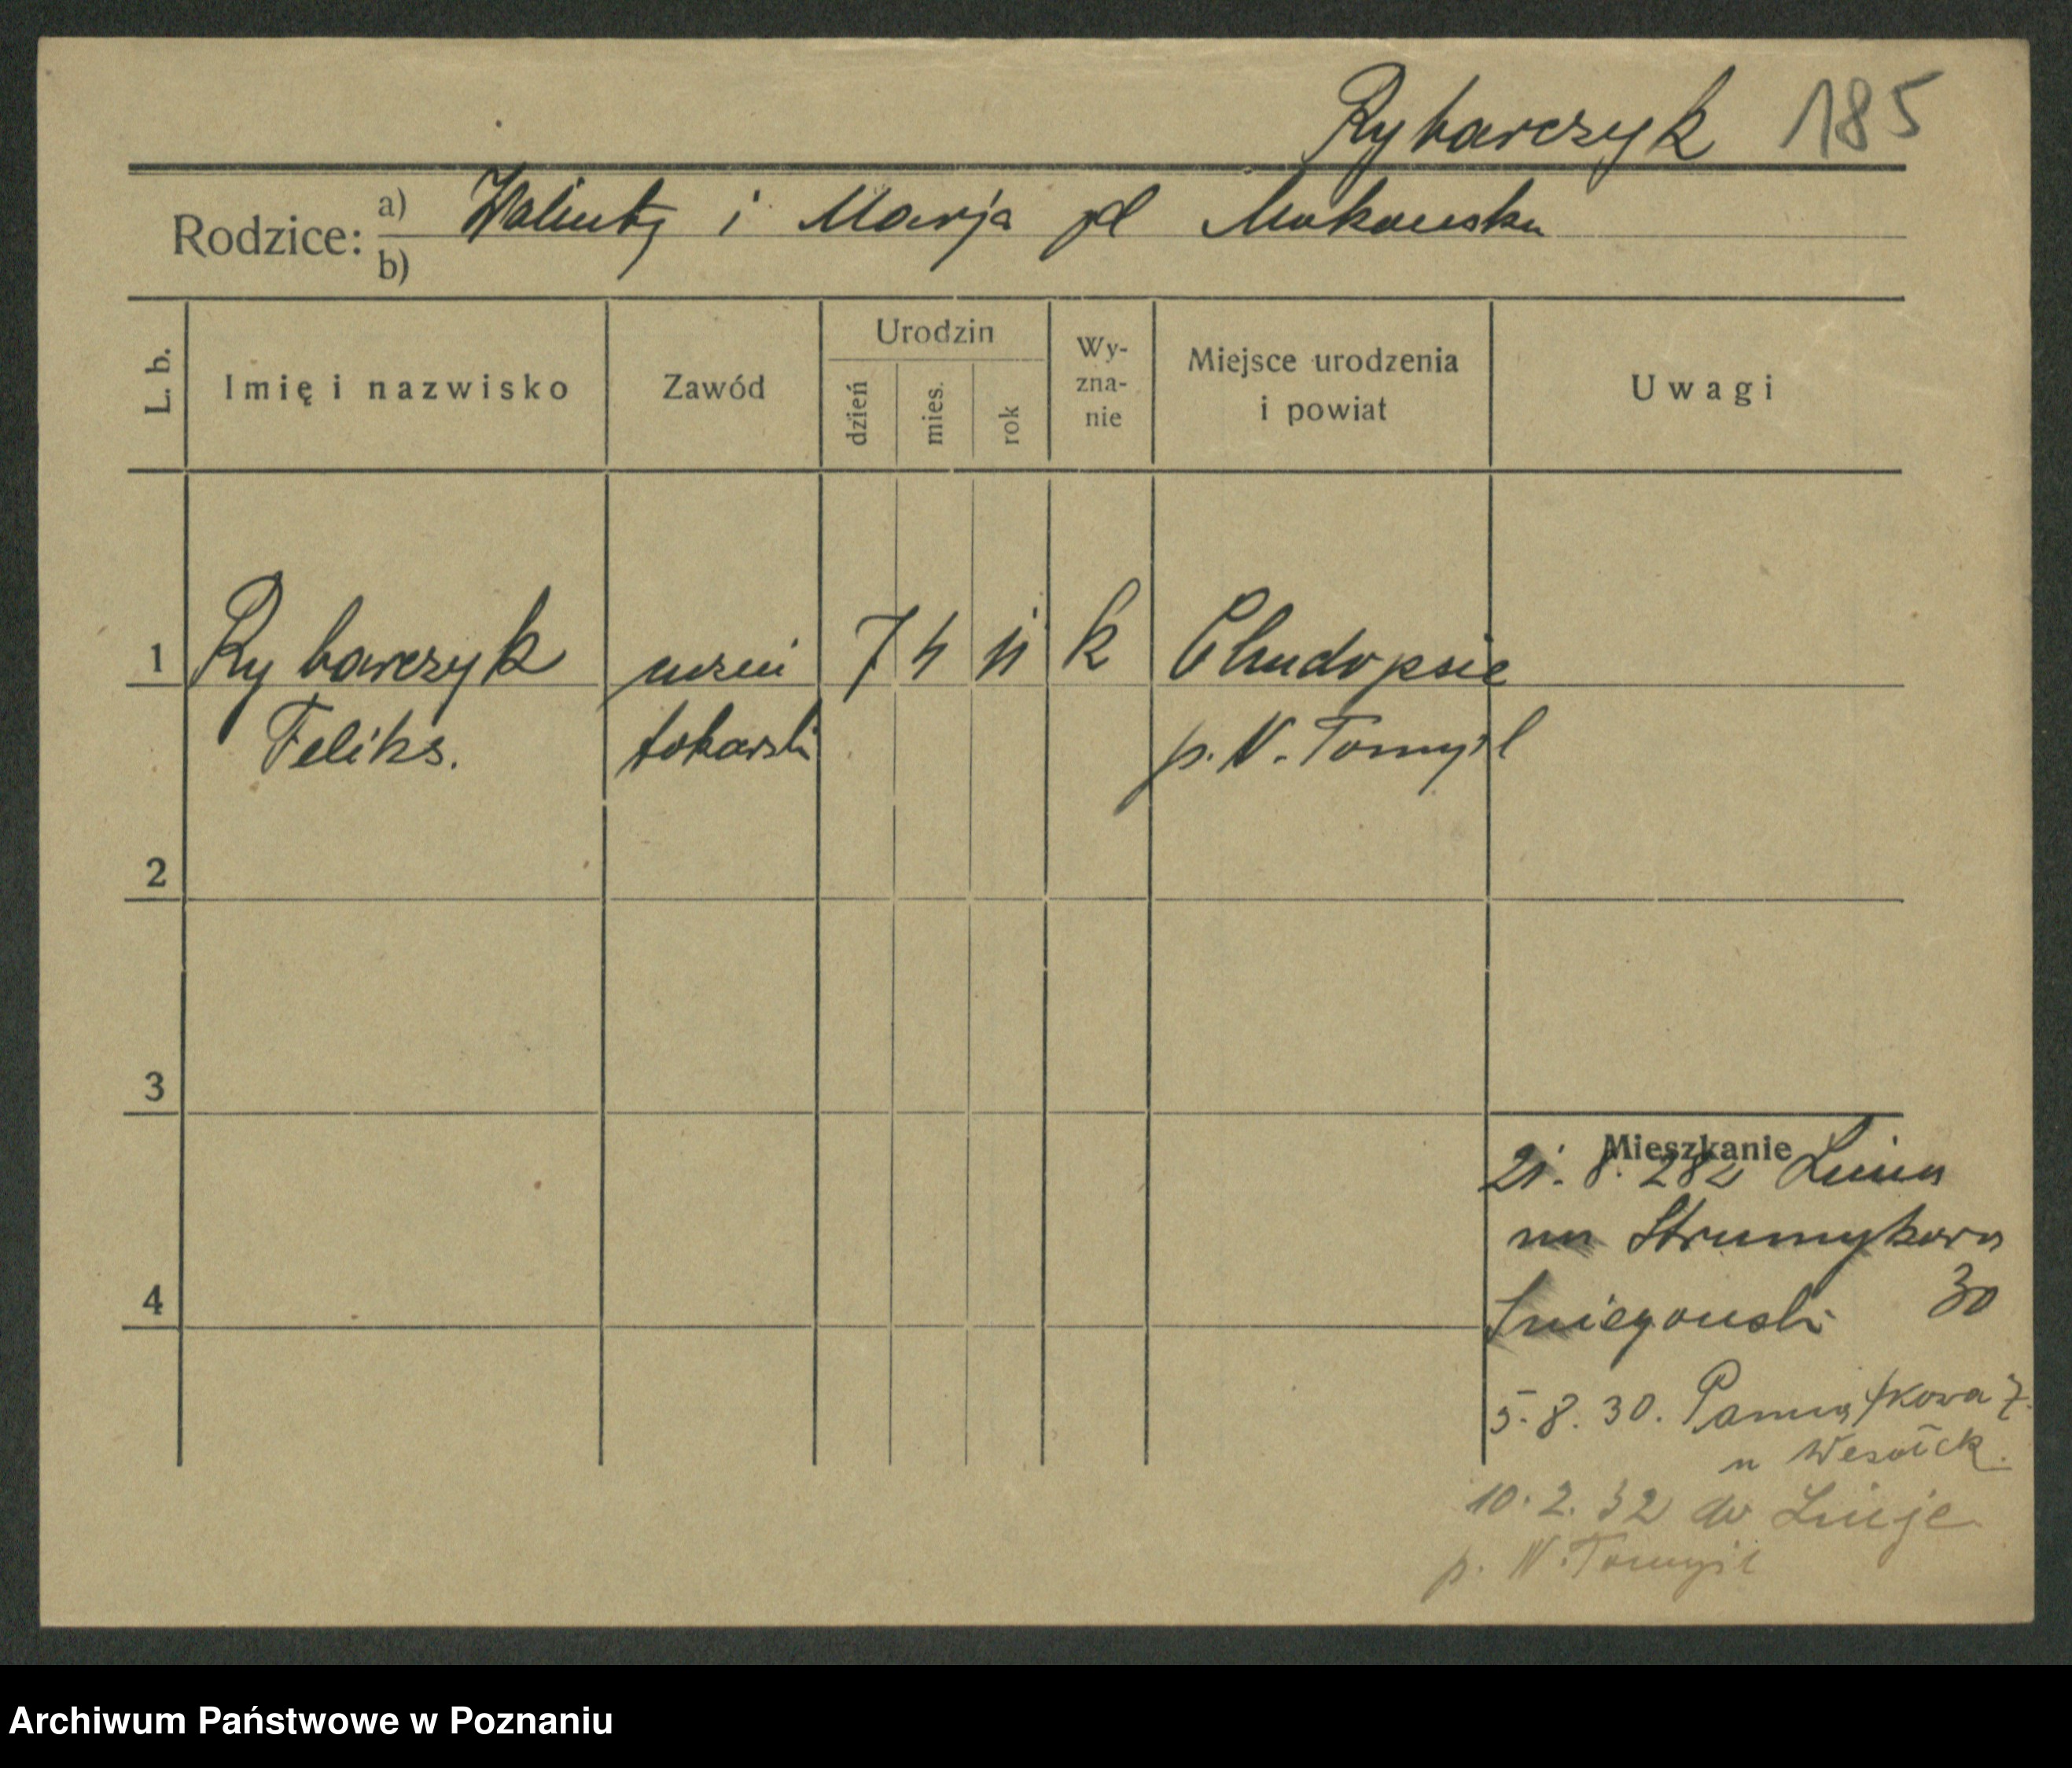 Rybarczyk 185
Rodzice: a) Walenty i Marja zd Makowska
b)
L. b.
Imię i nazwisko
Zawód
Urodzin
dzień
mies.
rok
Wy-
zna-
nie
Miejsce urodzenia
i powiat
Uwagi
1 Rybarczyk uczeń 7 4 11 k Chudopsie
Feliks. tokarski p. N. Tomyśl
2
3
Mieszkanie
21. 8. 28 z Linia
na Strumykowa
Śniegowski 30
5. 8. 30. Pamiątkowa 7.
u Wesołek.
10. 2. 32 do Linje
p. N. Tomyśl
4
Archiwum Państwowe w Poznaniu